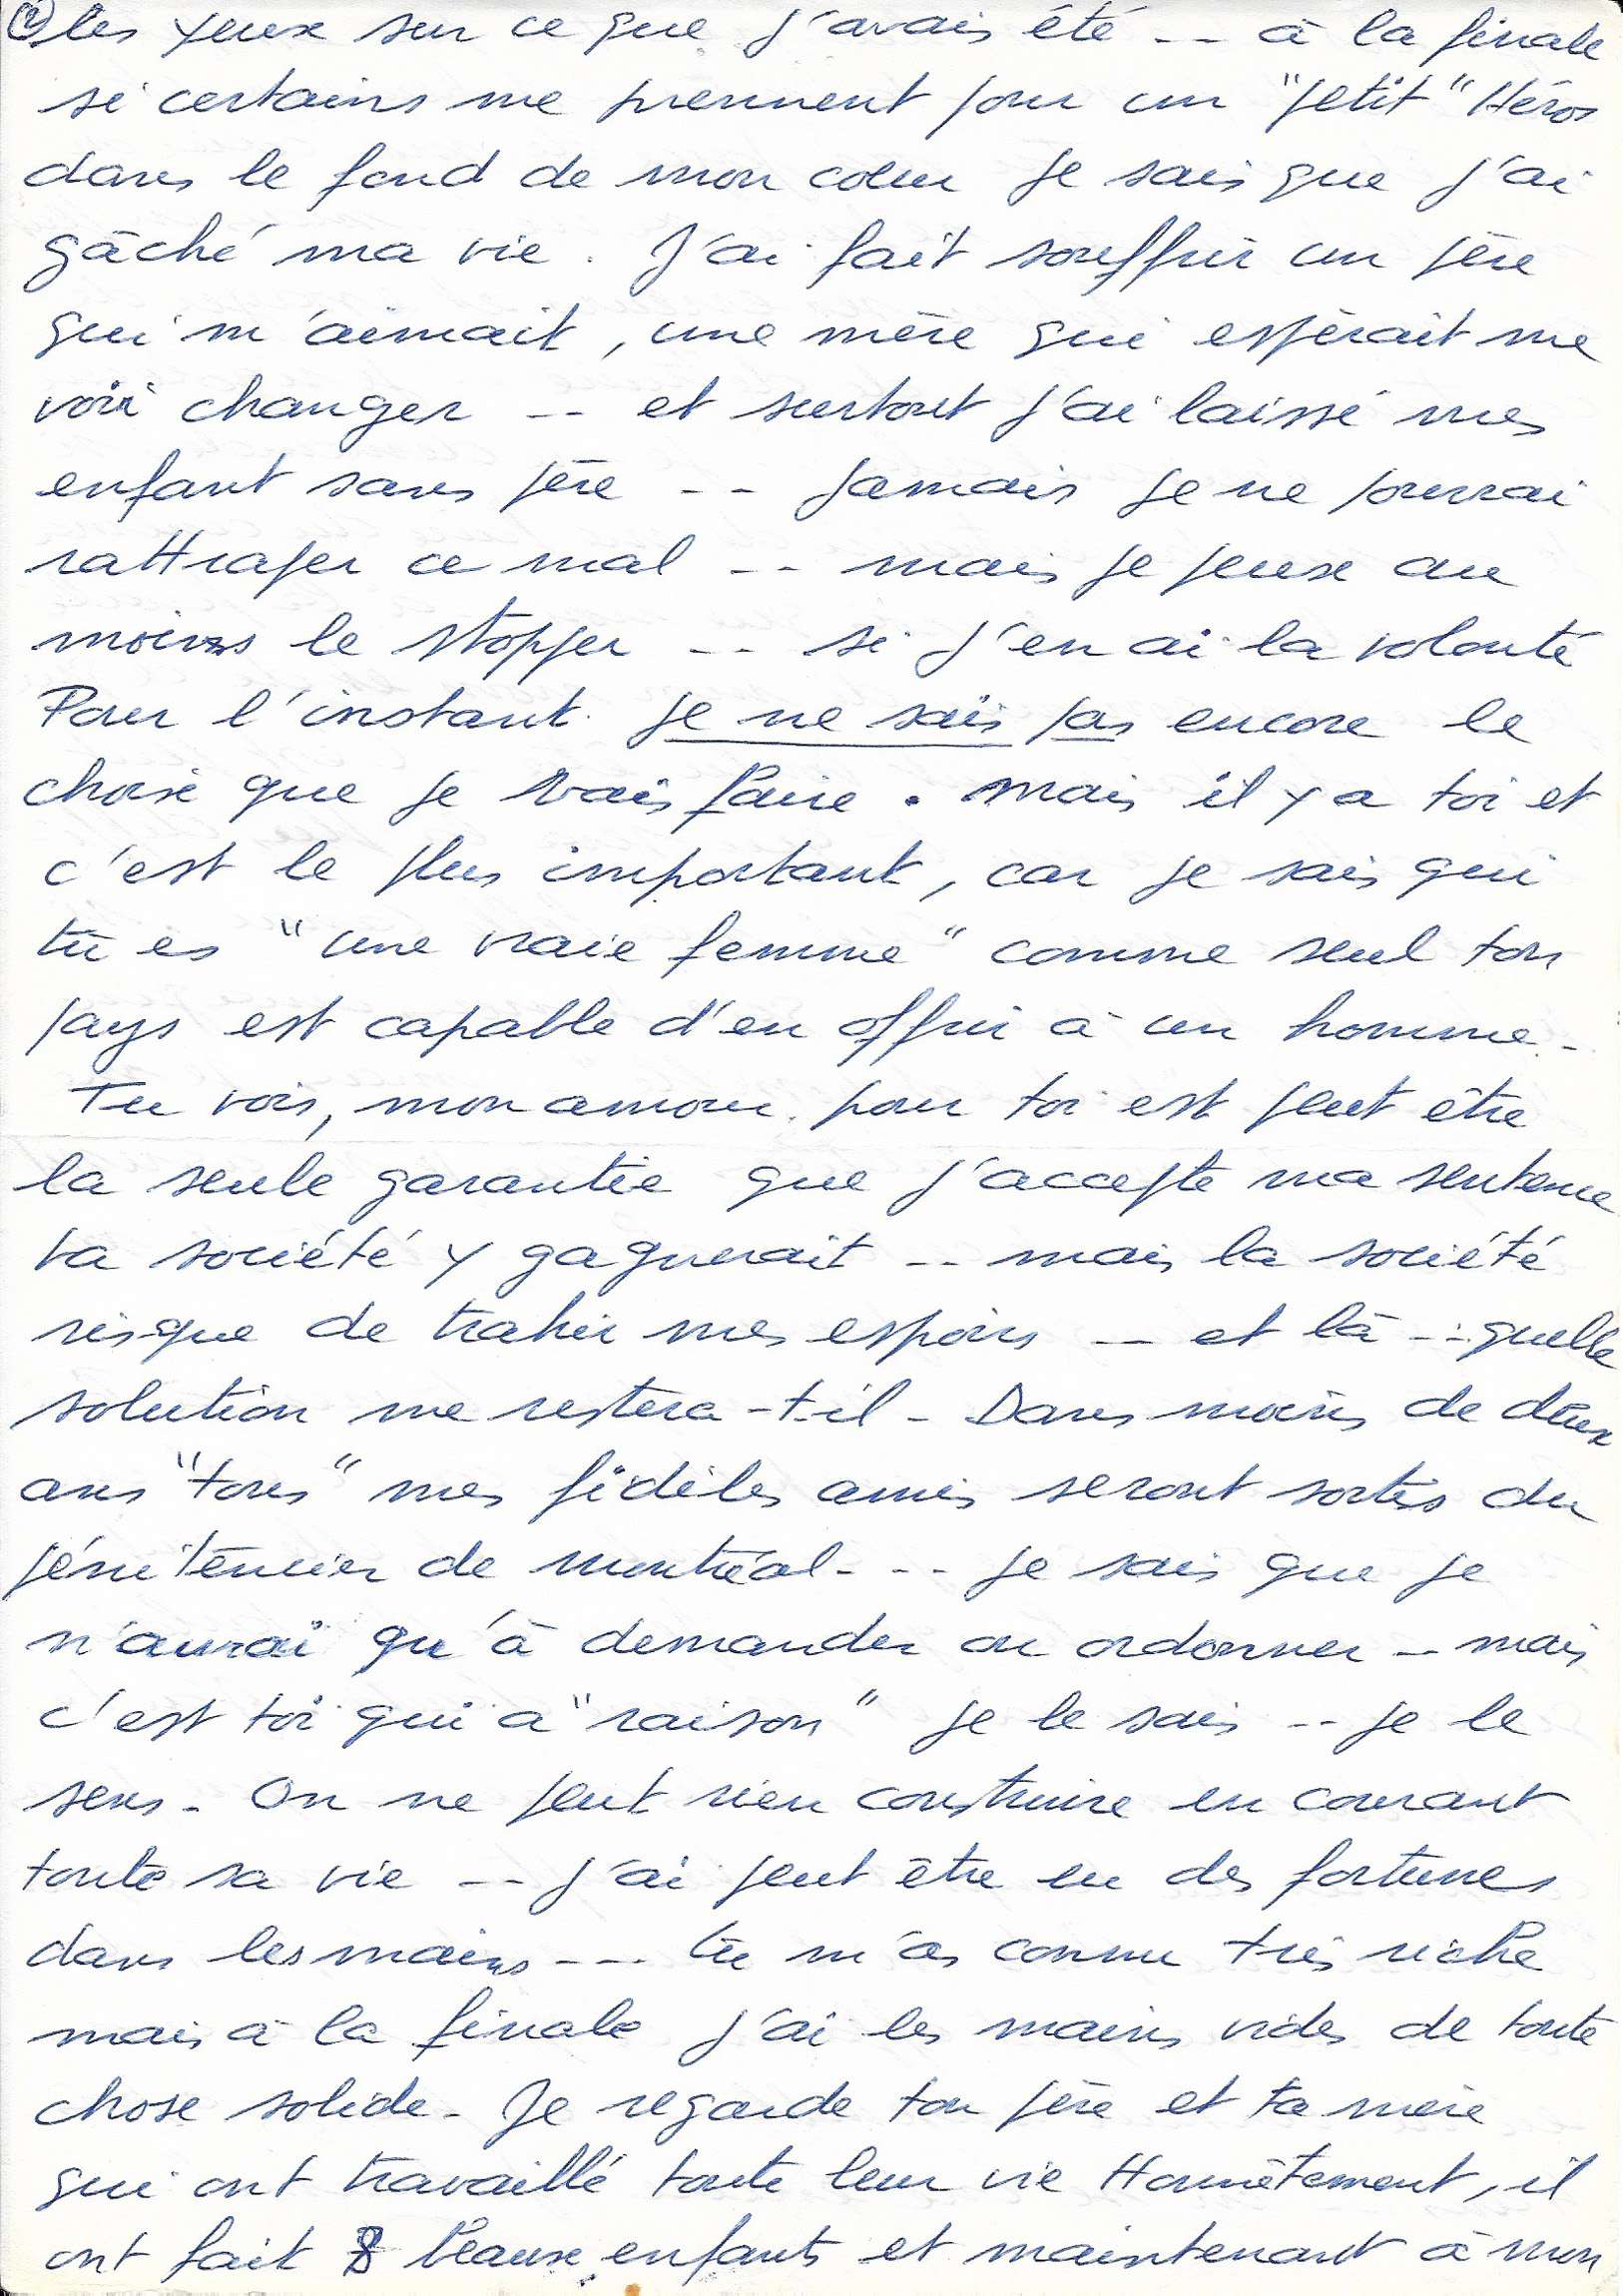 ② les yeux sur ce que j'avais été -- à la finale
si certains me prennent pour un "petit" Héros
dans le fond de mon coeur je sais que j'ai
gâché ma vie. J'ai fait souffrir un père
qui m'aimait, une mère qui espérait me
voir changer -- et surtout j'ai laissé mes
enfant sans père -- Jamais je ne pourrai
rattraper ce mal -- mais je peux au
moins le stopper -- si j'en ai la volonté
Pour l'instant je ne sais pas encore le
choix que je vais faire. Mais il y a toi et
c'est le plus important, car je sais qui
tu es "une vraie femme" comme seul ton
pays est capable d'en offrir à un homme -
Tu vois, mon amour pour toi est peut être
la seule garantie que j'accepte ma sentence
ta société y gagnerait -- mais la société
risque de trahir mes espoirs -- et là --- quelle
solution me restera-t-il - Dans moins de deux
ans "tous" mes fidèles amis seront sortis du
pénitencier de montréal --- je sais que je
n'aurai qu'à demander ou ordonner -- mais
c'est toi qui a "raison" je le sais -- je le
sens - On ne peut rien construire en courant
toute sa vie -- j'ai peut être eu des fortunes
dans les mains --- tu m'as connu très riche
mais à la finale j'ai les mains vides de toute
chose solide - Je regarde ton père et ta mère
qui ont travaillé toute leur vie Honnêtement, il
ont fait 8 beaux enfants et maintenant à mon